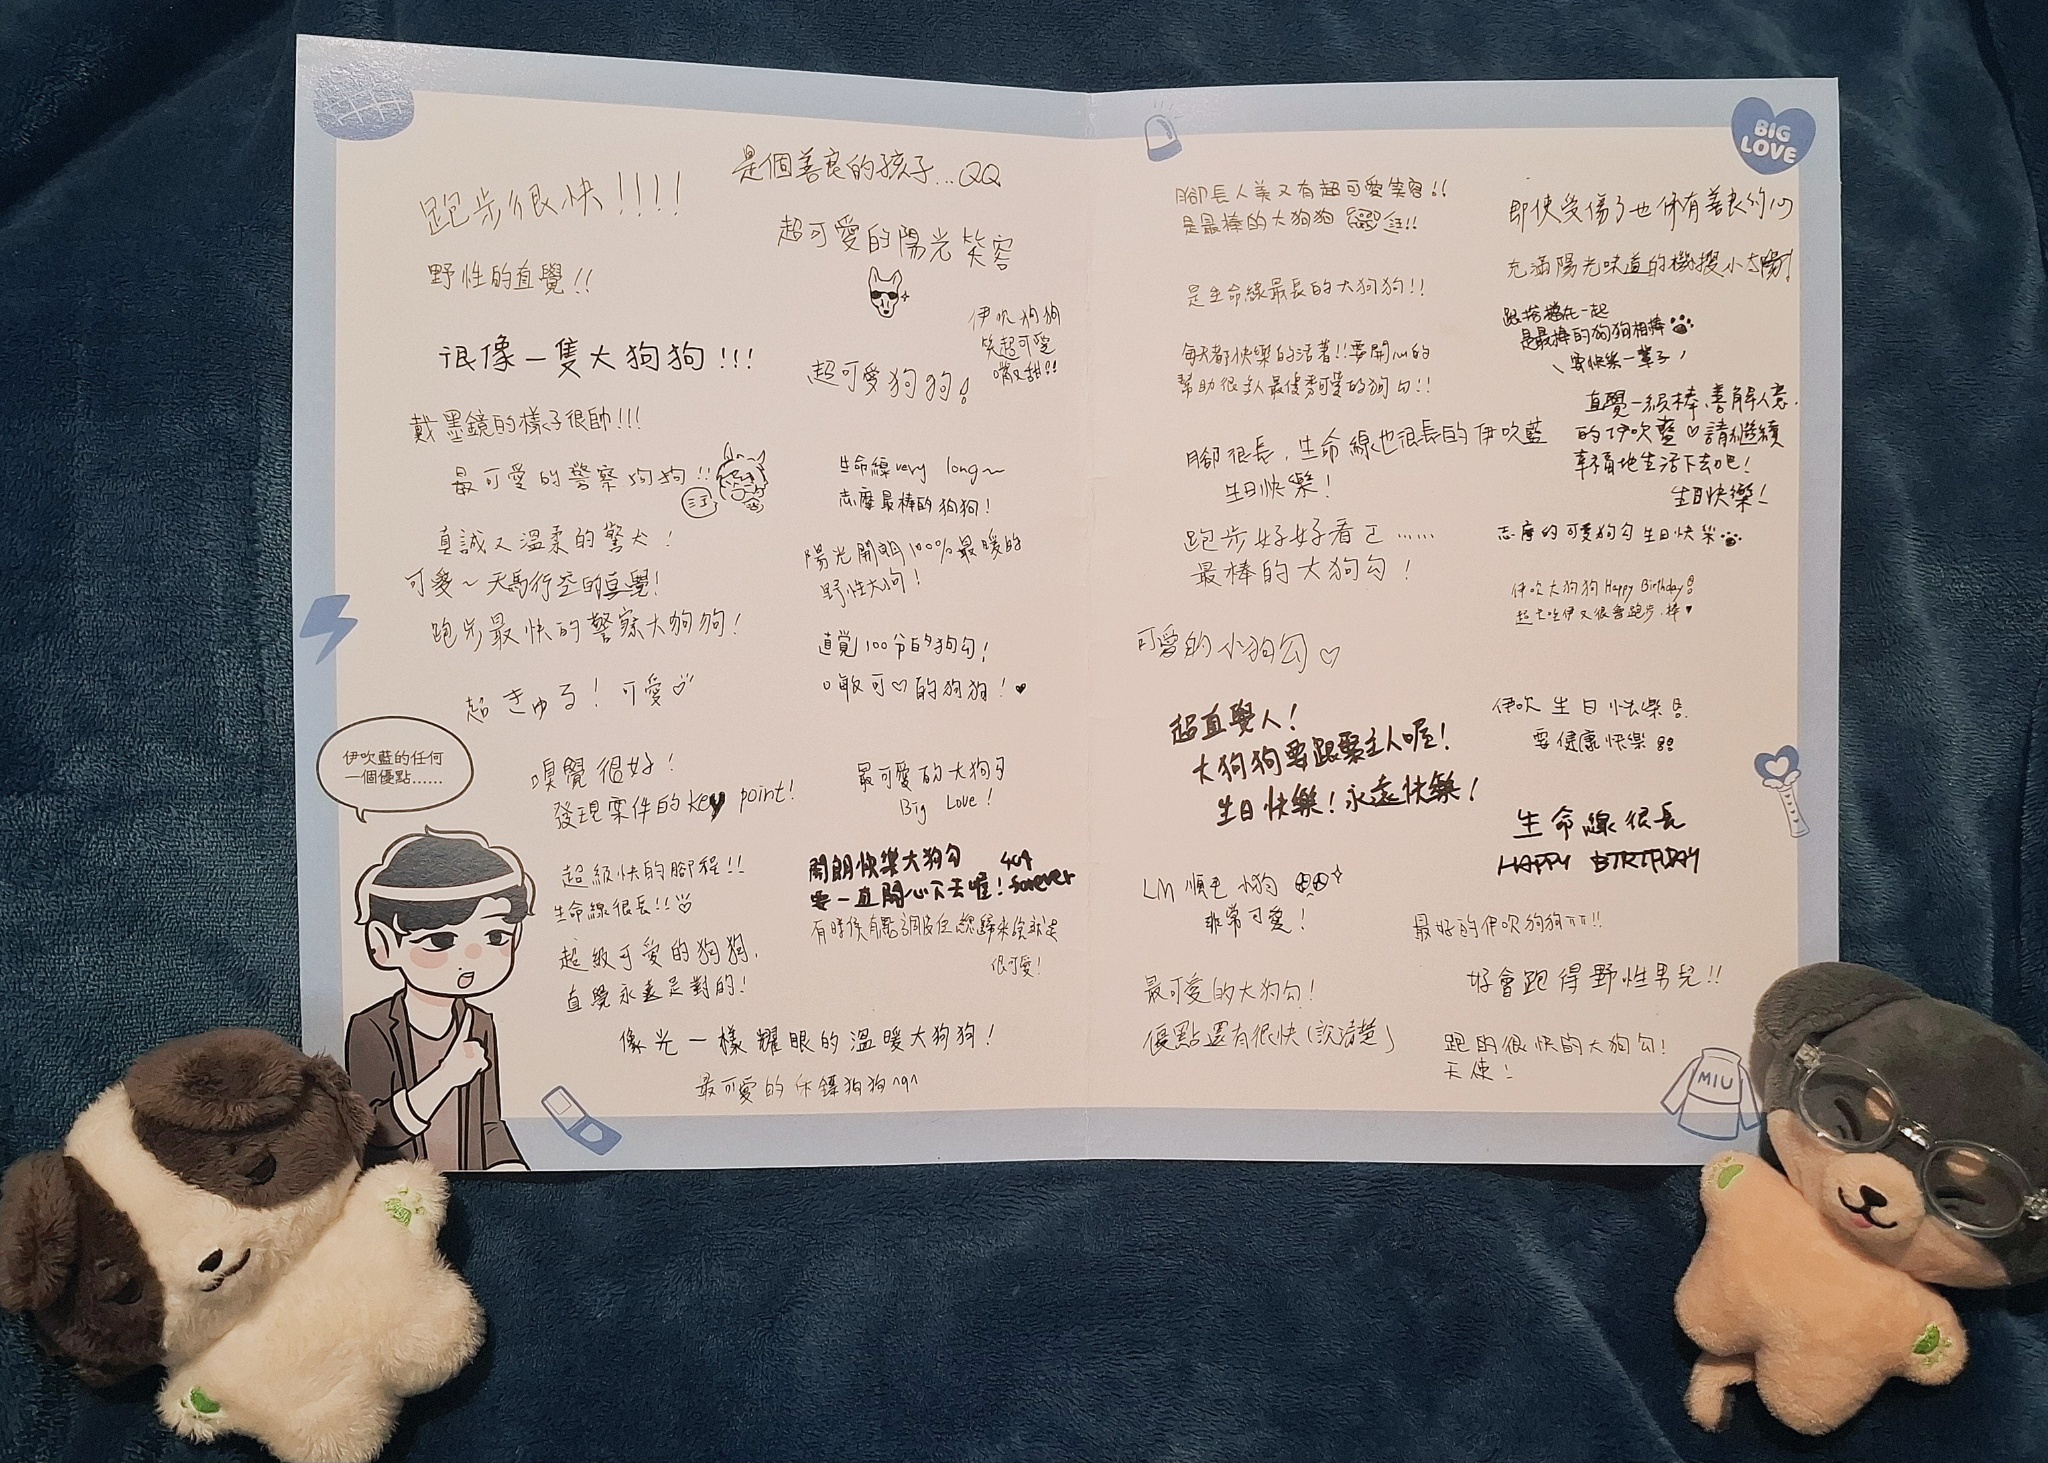 是個善良的孩子...QQ
跑步很快!!!!
超可愛的陽光笑容
野性的直覺!!
伊吹狗狗
笑超可愛
嘴又甜!!
很像一隻大狗狗!!!
超可愛狗狗!
戴墨鏡的樣子很帥!!!
最可愛的警察狗狗!!
生命線very long~
志摩最棒的狗狗!
真誠又溫柔的警犬!
陽光開朗100%最暖的
野性大狗!
可愛~天馬行空的直覺!
跑步最快的警察大狗狗!
直覚100分的狗勾!
超きゅる!可愛♡
口敏可♡的狗狗!♥
伊吹藍的任何
一個優點......
嗅覺很好!
發現案件的key point!
最可愛的大狗勾
Big Love!
超級快的腳程!!
生命線很長!!♡
開朗快樂大狗勾 404
要一直開心下去喔! forever
超級可愛的狗狗.
直覺永遠是對的!
很可愛!
像光一樣耀眼的溫暖大狗狗!
BIG
LOVE
腳長人美又有超可愛笑容!!
是最棒的大狗狗
即使受傷了也保有善良的心
充滿陽光味道的機搜小太陽!
是生命線最長的大狗狗!!
跟搭檔在一起
是最棒的狗狗相棒
要快樂一輩子
每天都快樂的活著!!要開心的
幫助很多人最優秀可愛的狗勾!!
直覺一級棒、善解人意
的伊吹藍♡請繼續
幸福地生活下去吧!
生日快樂!
腳很長,生命線也很長的伊吹藍
生日快樂!
志摩的可愛狗勾生日快樂
跑步好好看ㄛ......
最棒的大狗勾!
伊吹大狗狗Happy Birthday!
可愛的小狗勾♡
超直覺人!
大狗狗要跟緊主人喔!
生日快樂!永遠快樂!
伊吹生日快樂
要健康快樂
生命線很長
HAPPY BIRTHDAY
順毛小狗
非常可愛!
最好的伊吹狗狗ㄇㄇ!!
最可愛的大狗勾!
優點還有很快(說清楚)
好會跑得野性男兒!!
跑的很快的大狗勾!
天使!
MIU